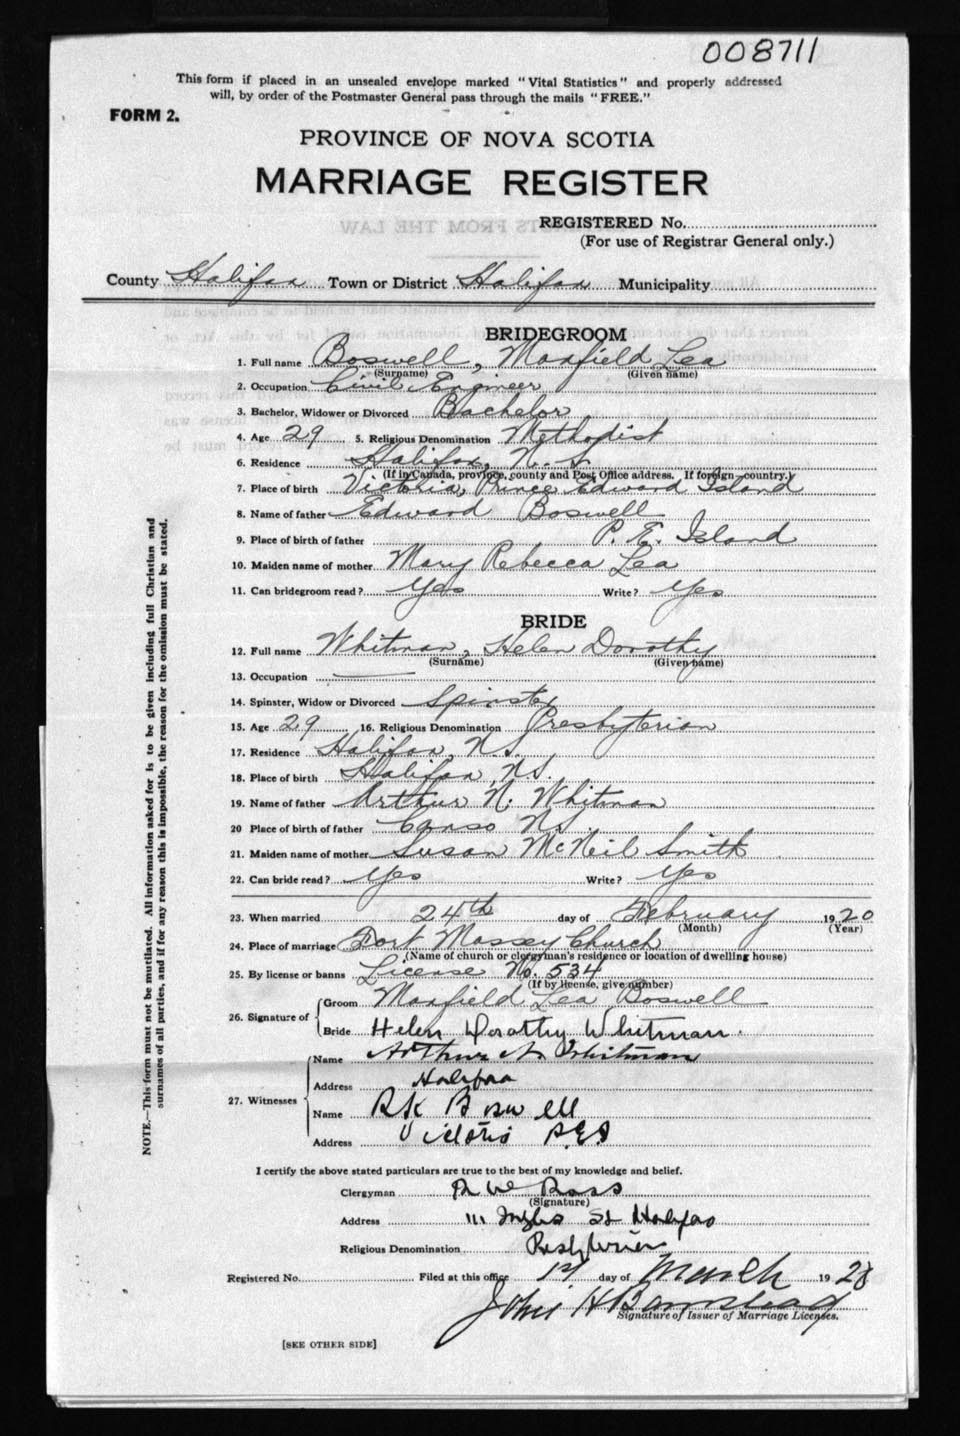 008711
This form if placed in an unsealed envelope marked "Vital Statistics" and properly addressed
will, by order of the Postmaster General pass through the mails "FREE."
FORM 2.
PROVINCE OF NOVA SCOTIA
MARRIAGE REGISTER
REGISTERED No.
(For use of Registrar General only.)
County Halifax Town or District Halifax Municipality
BRIDEGROOM
1. Full name Boswell, Maxfield Lea
(Surname) (Given name)
2. Occupation Civil Engineer
3. Bachelor, Widower or Divorced Bachelor
4. Age 29 5. Religious Denomination Methodist
6. Residence Halifax, N.S.
(If in Canada, province, county and Post Office address. If foreign—country.)
7. Place of birth Victoria, Prince Edward Island
8. Name of father Edward Boswell
9. Place of birth of father P. E. Island
10. Maiden name of mother Mary Rebecca Lea
11. Can bridegroom read? Yes Write? Yes
BRIDE
12. Full name Whitman, Helen Dorothy
(Surname) (Given name)
13. Occupation —
14. Spinster, Widow or Divorced Spinster
15. Age 29 16. Religious Denomination Presbyterian
17. Residence Halifax, N.S.
18. Place of birth Halifax, N.S.
19. Name of father Arthur N. Whitman
20 Place of birth of father Canso N.S.
21. Maiden name of mother Susan McNeil Smith
22. Can bride read? Yes Write? Yes
23. When married 24th day of February 1920
(Month) (Year)
24. Place of marriage Fort Massey Church
(Name of church or clergyman's residence or location of dwelling house)
25. By license or banns License No. 534
(If by license, give number)
26. Signature of
Groom Maxfield Lea Boswell
Bride Helen Dorothy Whitman.
27. Witnesses
Name Arthur N Whitman
Address Halifax
Name RK Boswell
Address Victoria P.E.I
I certify the above stated particulars are true to the best of my knowledge and belief.
Clergyman R W Ross
(Signature)
Address 111 Inglis St Halifax
Religious Denomination Presbyterian
Registered No. Filed at this office 1st day of March 1920
John H Barnstead
Signature of Issuer of Marriage Licenses.
[SEE OTHER SIDE]
NOTE.—This form must not be mutilated. All information asked for is to be given including full Christian and
surnames of all parties, and if for any reason this is impossible, the reason for the omission must be stated.